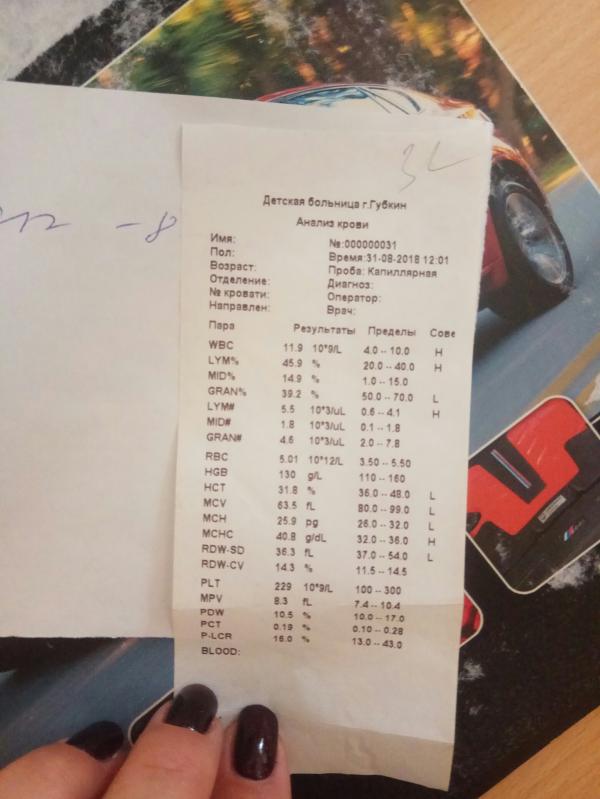 Детская больница г.Губкин
Анализ крови
Имя: №:000000031
Пол: Время:31-08-2018 12:01
Возраст: Проба: Капиллярная
Отделение: Диагноз:
№ кровати: Оператор:
Направлен: Врач:
Пара Результаты Пределы Сове
WBC 11.9 10*9/L 4.0 -- 10.0 H
LYM% 45.9 % 20.0 -- 40.0 H
MID% 14.9 % 1.0 -- 15.0
GRAN% 39.2 % 50.0 -- 70.0 L
LYM# 5.5 10*3/uL 0.6 -- 4.1 H
MID# 1.8 10*3/uL 0.1 -- 1.8
GRAN# 4.6 10*3/uL 2.0 -- 7.8
RBC 5.01 10*12/L 3.50 -- 5.50
HGB 130 g/L 110 -- 160
HCT 31.8 % 36.0 -- 48.0 L
MCV 63.5 fL 80.0 -- 99.0 L
MCH 25.9 pg 26.0 -- 32.0 L
MCHC 40.8 g/dL 32.0 -- 36.0 H
RDW-SD 36.3 fL 37.0 -- 54.0 L
RDW-CV 14.3 % 11.5 -- 14.5
PLT 229 10*9/L 100 -- 300
MPV 8.3 fL 7.4 -- 10.4
PDW 10.5 % 10.0 -- 17.0
PCT 0.19 % 0.10 -- 0.28
P-LCR 16.0 % 13.0 -- 43.0
BLOOD:
-8